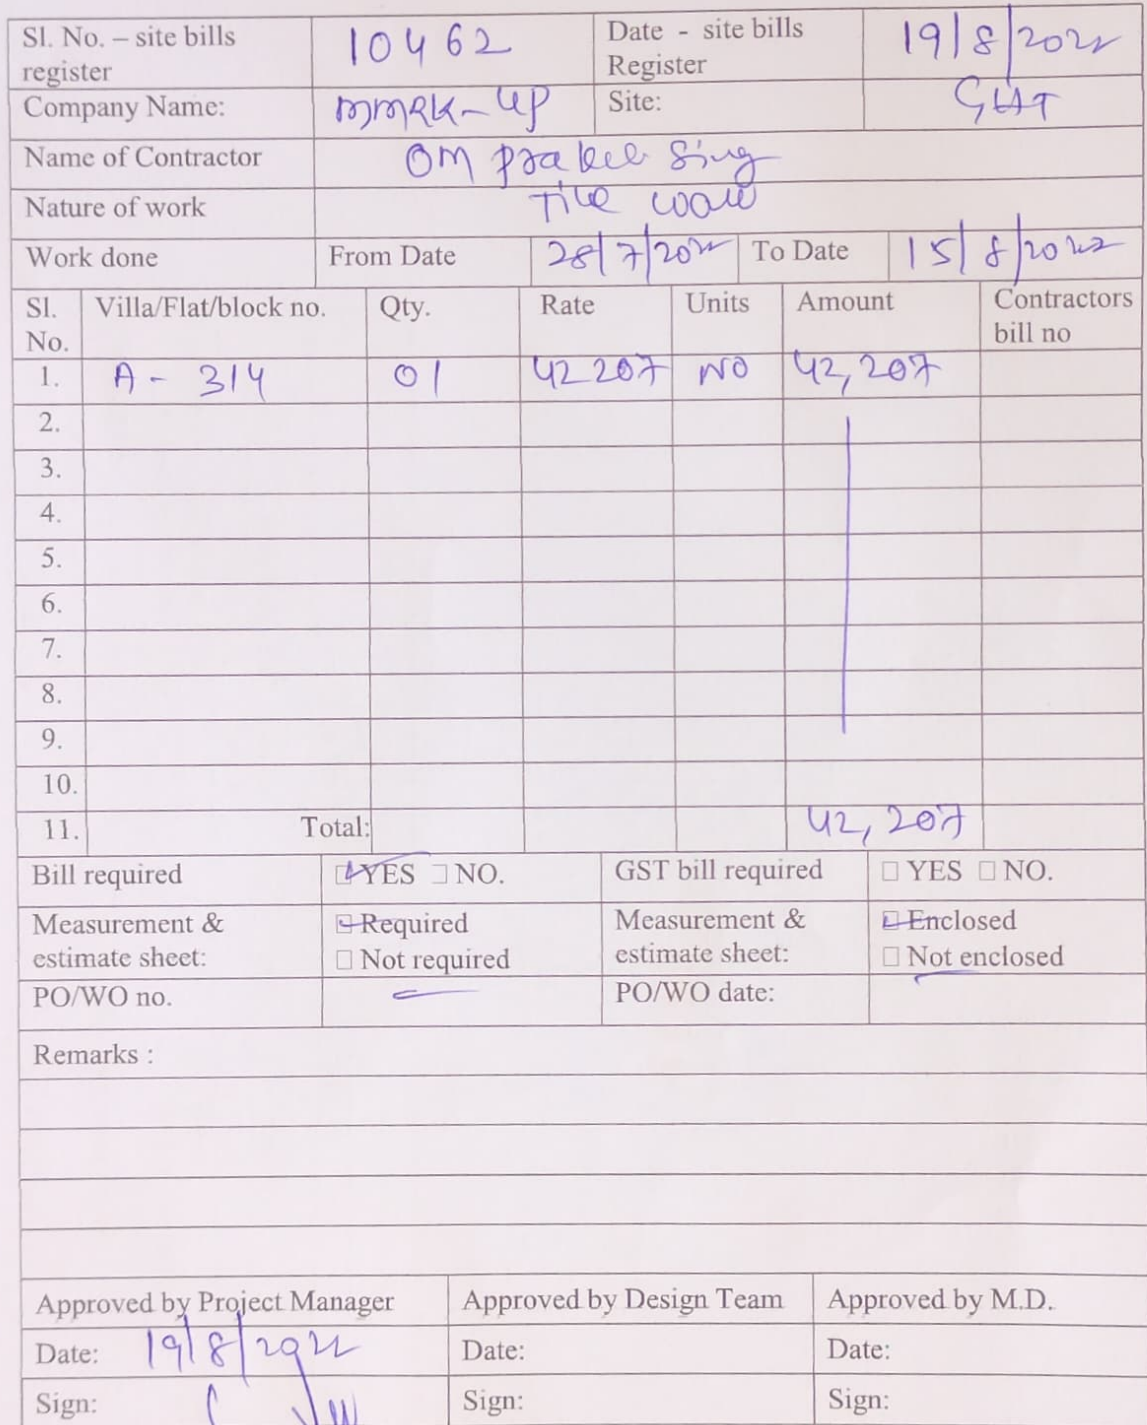 Sl. No. – site bills register 10462 Date - site bills Register 19/8/2022
Company Name: MMRK-UP Site: GHT
Name of Contractor OM Sing
Nature of work Tile
Work done From Date 28/7/2022 To Date 15/8/2022
Sl. No. Villa/Flat/block no. Qty. Rate Units Amount Contractors bill no
1. A - 314 01 42207 NO 42,207
2.
3.
4.
5.
6.
7.
8.
9.
10.
11. Total: 42,207
Bill required YES NO. GST bill required YES NO.
Measurement & estimate sheet: Required Not required Measurement & estimate sheet: Enclosed Not enclosed
PO/WO no. PO/WO date:
Remarks :
Approved by Project Manager Approved by Design Team Approved by M.D.
Date: 19/8/2022 Date: Date:
Sign: Sign: Sign: